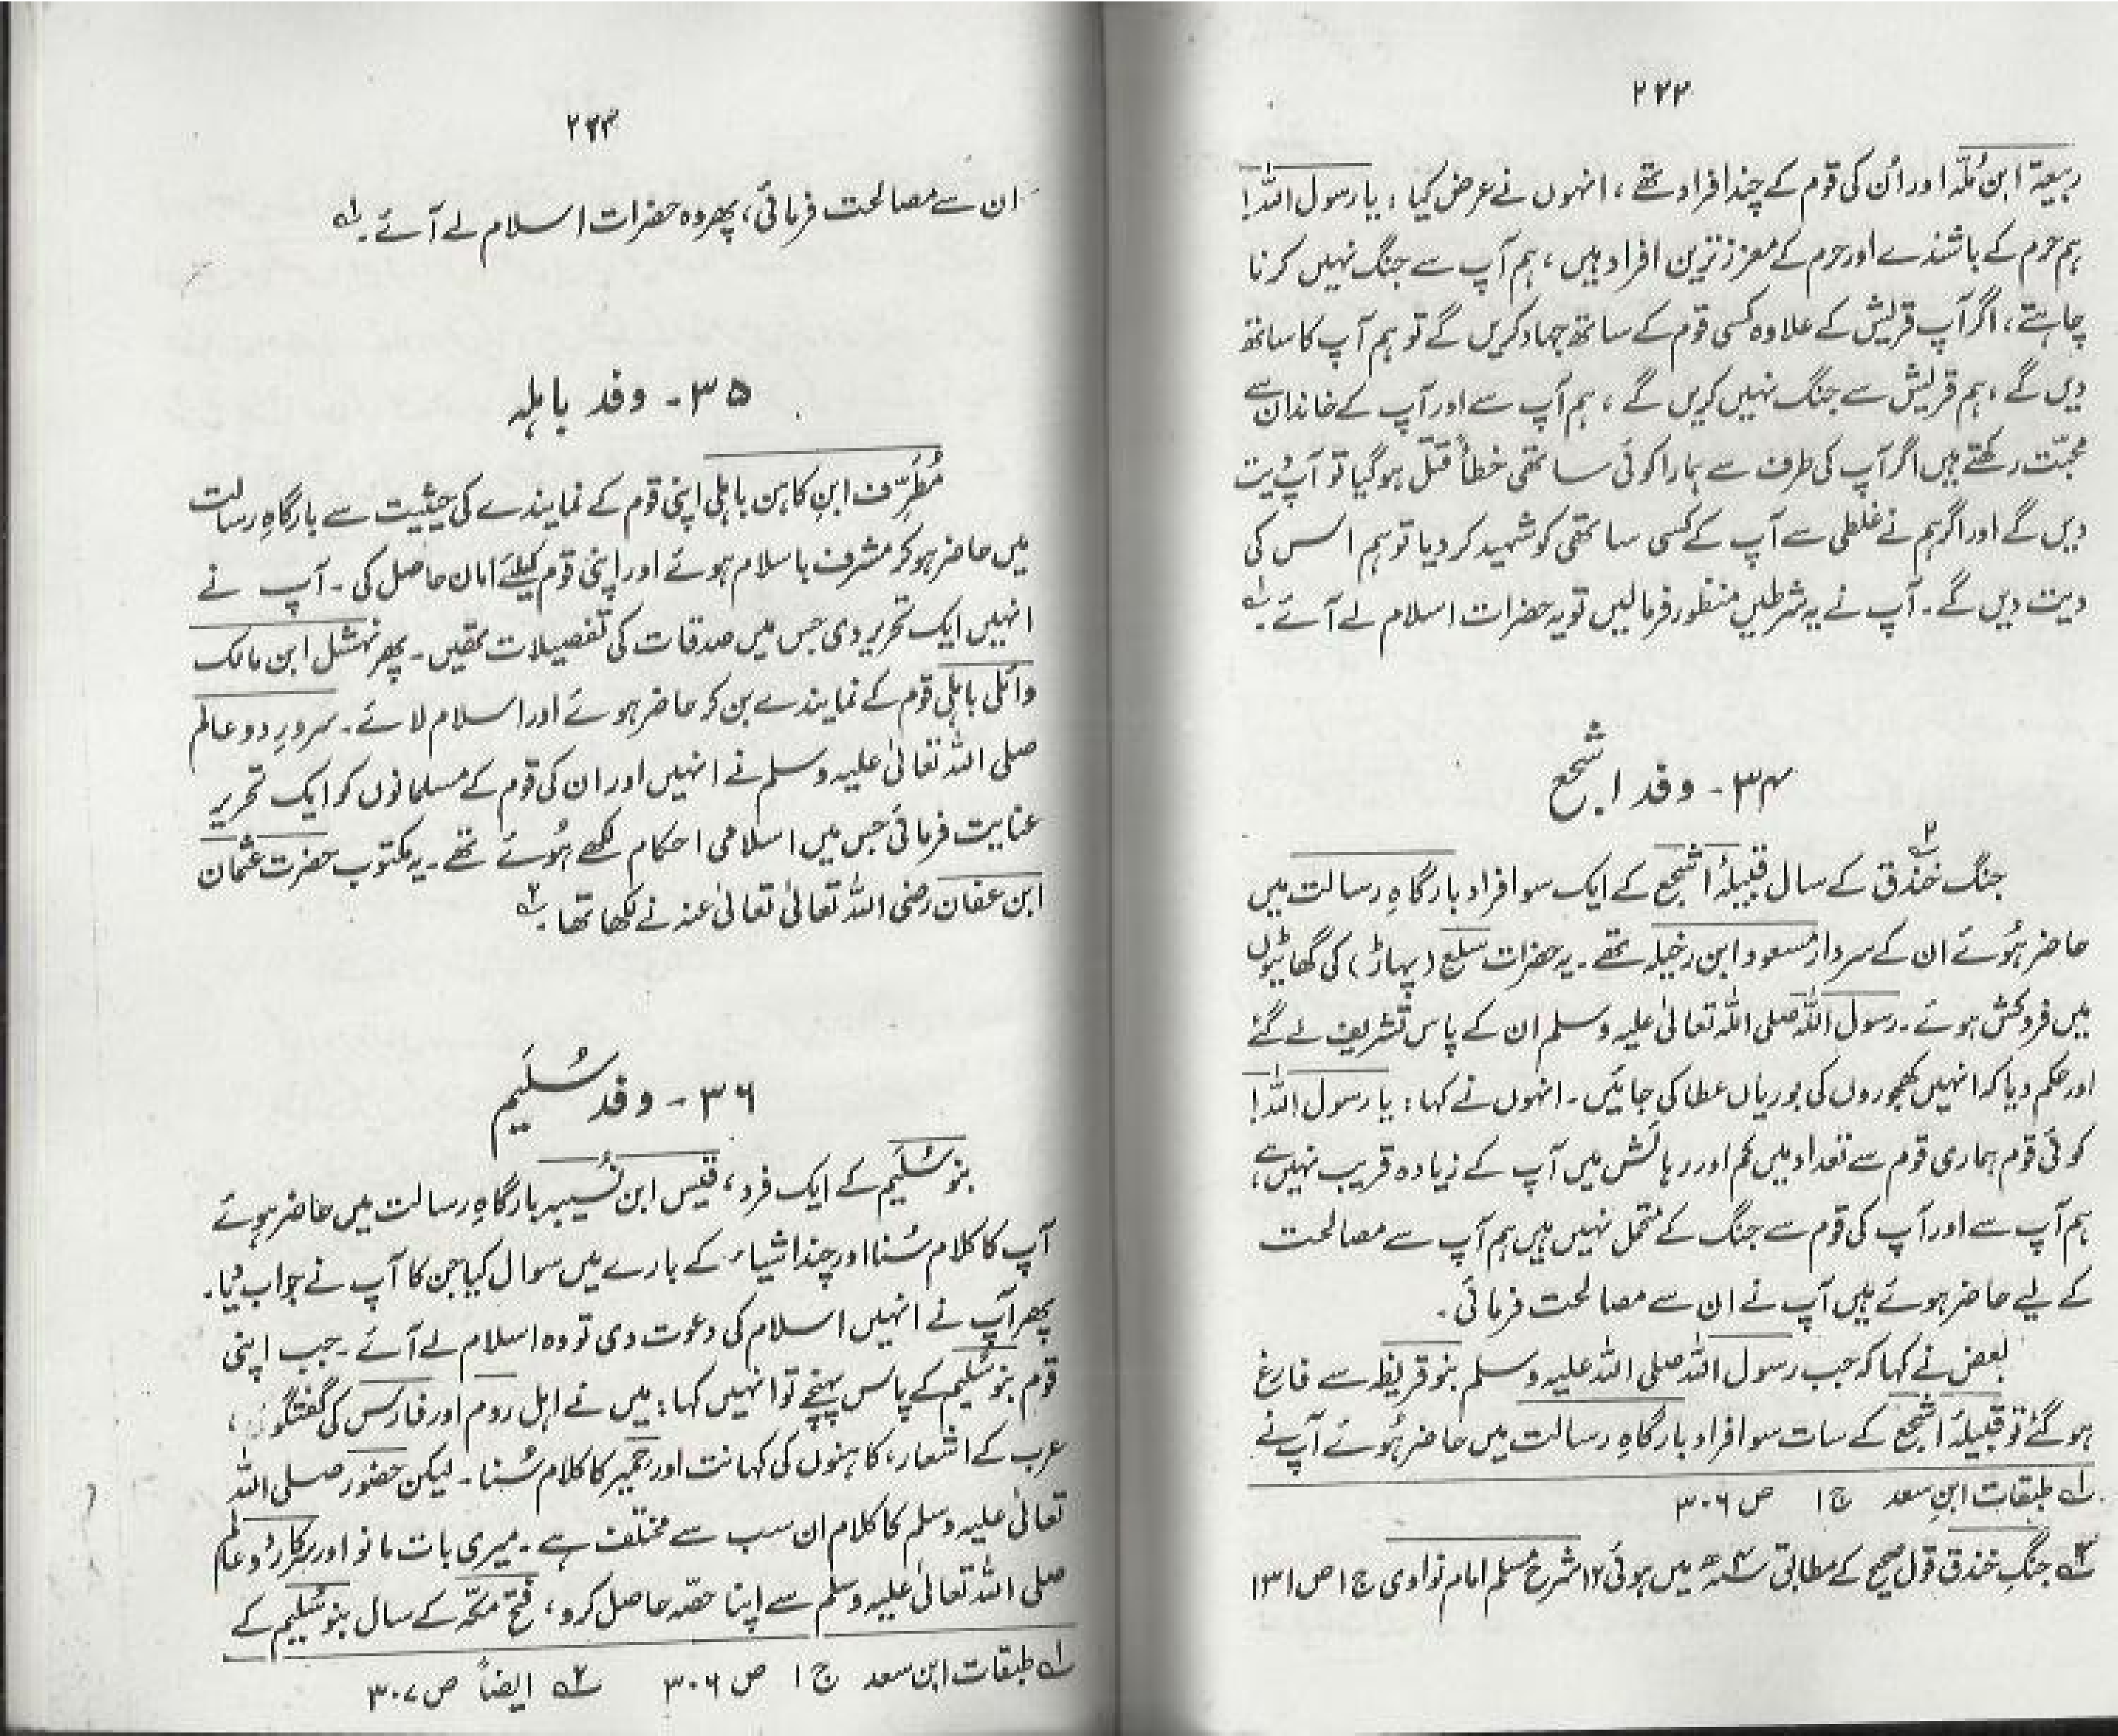 ۲۲۲
ربیعۃ ابن مُلّہ اور اُن کی قوم کے چند افراد تھے، انہوں نے عرض کیا: یا رسول اللہ!
ہم حرم کے باشندے اور حرم کے معزز ترین افراد ہیں، ہم آپ سے جنگ نہیں کرنا
چاہتے، اگر آپ قریش کے علاوہ کسی قوم کے ساتھ جہاد کریں گے تو ہم آپ کا ساتھ
دیں گے، ہم قریش سے جنگ نہیں کریں گے، ہم آپ سے اور آپ کے خاندان سے
محبّت رکھتے ہیں اگر آپ کی طرف سے ہمارا کوئی ساتھی خطأً قتل ہو گیا تو آپ دیت
دیں گے اور اگر ہم نے غلطی سے آپ کے کسی ساتھی کو شہید کر دیا تو ہم اس کی
دیت دیں گے۔ آپ نے یہ شرطیں منظور فرمالیں تو یہ حضرات اسلام لے آئے۔ ؂۱
۳۴۔ وفد اشجع
جنگ خندق ؂۲ کے سال قبیلۂ اشجع کے ایک سو افراد بارگاہِ رسالت میں
حاضر ہُوئے ان کے سردار مسعود ابن رخیلہ تھے۔ یہ حضرات سلع (پہاڑ) کی گھاٹیوں
میں فروکش ہوئے۔ رسول اللہ صلی اللہ تعالیٰ علیہ وسلم ان کے پاس تشریف لے گئے
اور حکم دیا کہ انہیں کھجوروں کی بوریاں عطا کی جائیں۔ انہوں نے کہا: یا رسول اللہ!
کوئی قوم ہماری قوم سے تعداد میں کم اور رہائش میں آپ کے زیادہ قریب نہیں ہے،
ہم آپ سے اور آپ کی قوم سے جنگ کے متحمل نہیں ہیں ہم آپ سے مصالحت
کے لیے حاضر ہوئے ہیں آپ نے ان سے مصالحت فرمائی۔
بعض نے کہا کہ جب رسول اللہ صلی اللہ علیہ وسلم بنو قریظہ سے فارغ
ہو گئے تو قبیلۂ اشجع کے سات سو افراد بارگاہِ رسالت میں حاضر ہُوئے آپ نے
؂۱ طبقات ابنِ سعد ج ۱ ص ۳۰۶
؂۲ جنگِ خندق قول صحیح کے مطابق ۴ھ میں ہوئی ۱۲ شرح مسلم امام نواوی ج ۱ ص ۱۳۱
۲۲۳
ان سے مصالحت فرمائی، پھر وہ حضرات اسلام لے آئے۔ ؂۱
۳۵۔ وفد باہلہ
مُطَرِّف ابنِ کاہن باہلی اپنی قوم کے نمایندے کی حیثیت سے بارگاہِ رسالت
میں حاضر ہو کر مشرف باسلام ہوئے اور اپنی قوم کیلئے امان حاصل کی۔ آپ نے
انہیں ایک تحریر دی جس میں صدقات کی تفصیلات تھیں۔ پھر نہشل ابن مالک
وائلی باہلی قوم کے نمایندے بن کر حاضر ہوئے اور اسلام لائے۔ سرورِ دو عالم
صلی اللہ تعالیٰ علیہ وسلم نے انہیں اور ان کی قوم کے مسلمانوں کو ایک تحریر
عنایت فرمائی جس میں اسلامی احکام لکھے ہُوئے تھے۔ یہ مکتوب حضرت عثمان
ابن عفان رضی اللہ تعالیٰ تعالیٰ عنہ نے لکھا تھا۔ ؂۲
۳۶۔ وفد سُلَیم
بنو سُلَیم کے ایک فرد، قیس ابن نُسیبہ بارگاہِ رسالت میں حاضر ہوئے
آپ کا کلام سُنا اور چند اشیاء کے بارے میں سوال کیا جن کا آپ نے جواب دیا۔
پھر آپ نے انہیں اسلام کی دعوت دی تو وہ اسلام لے آئے۔ جب اپنی
قوم بنو سُلیم کے پاس پہنچے تو انہیں کہا: میں نے اہل روم اور فارس کی گفتگو،
عرب کے اشعار، کاہنوں کی کہانت اور حمیر کا کلام سُنا۔ لیکن حضور صلی اللہ
تعالیٰ علیہ وسلم کا کلام ان سب سے مختلف ہے۔ میری بات مانو اور سرکارِ دو عالم
صلی اللہ تعالیٰ علیہ وسلم سے اپنا حصّہ حاصل کرو، فتح مکّہ کے سال بنو سُلیم کے
؂۱ طبقات ابن سعد ج ۱ ص ۳۰۶ ؂۲ ایضاً ص ۳۰۷